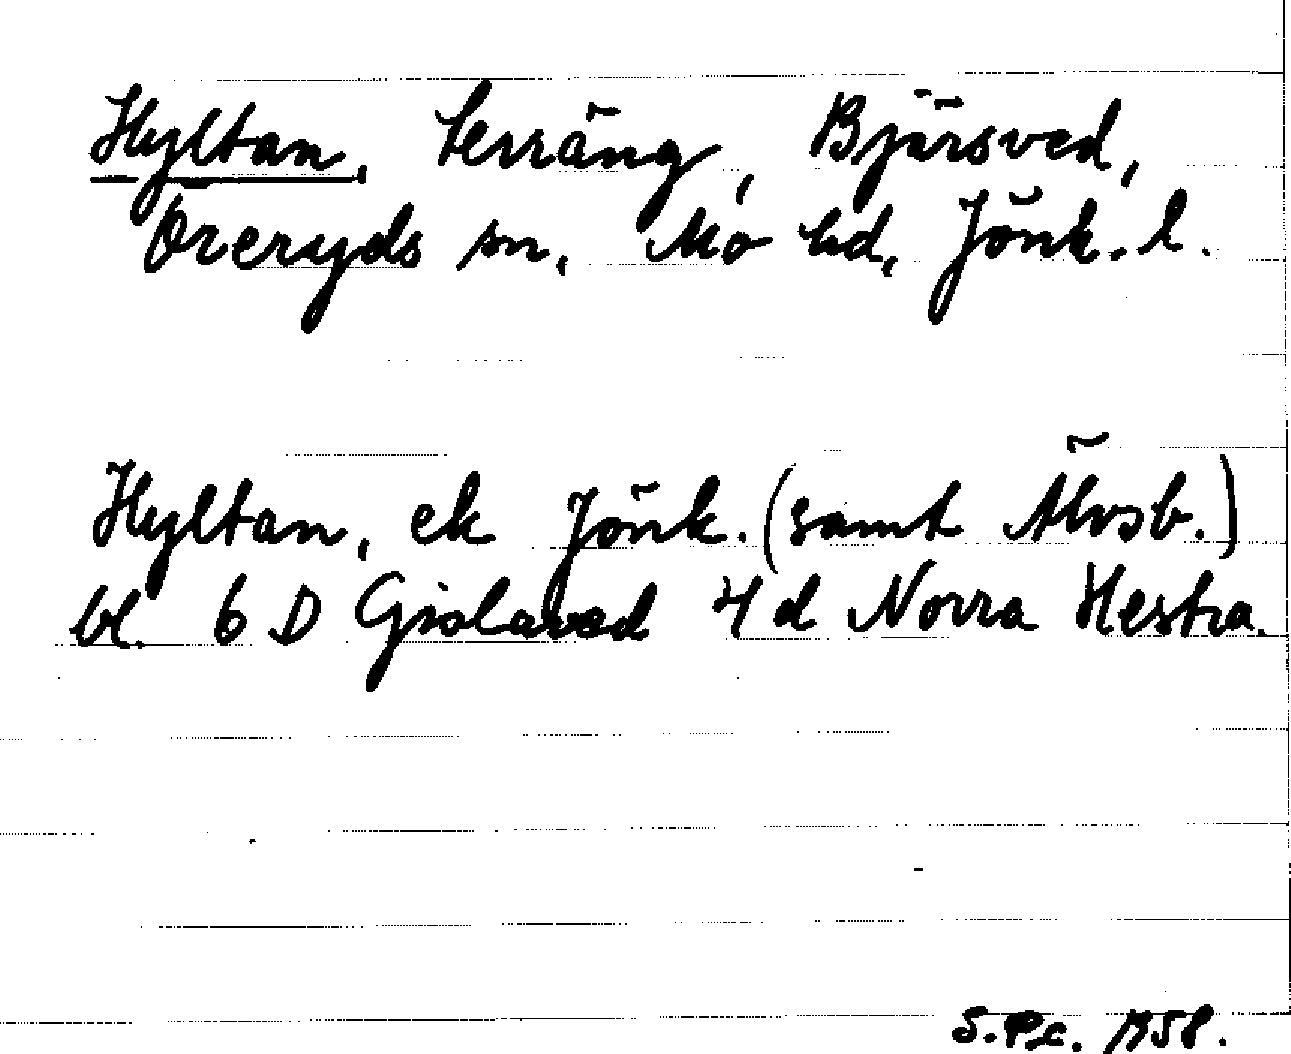 Hyltan, terräng, Bjärsved,
Öreryds sn, Mo hd, Jönk. l.
Hyltan, ek Jönk. (samt Älvsb.)
bl. 6 D Gislaved 4 d Norra Hestra.
S.Pc. 1958.